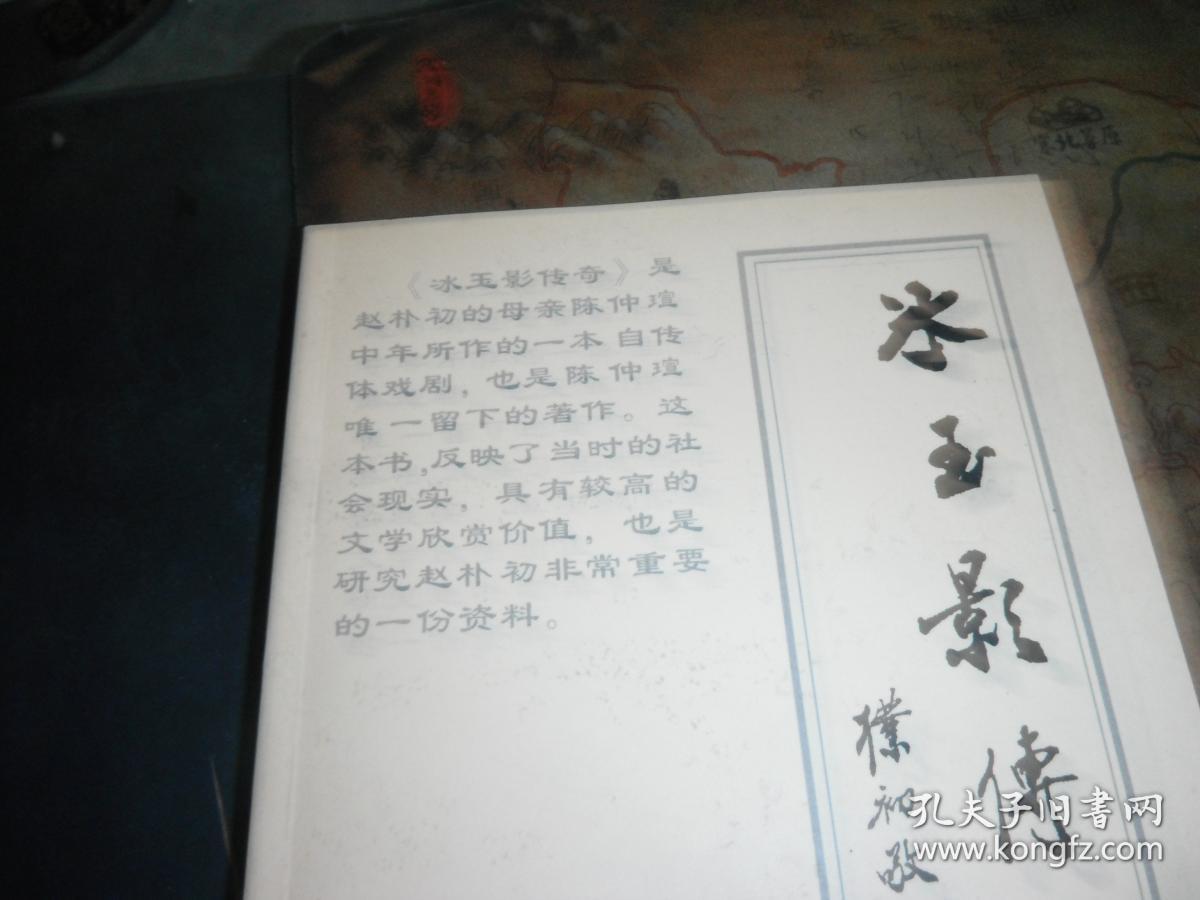 《冰玉影传奇》是
赵朴初的母亲陈仲瑄
中年所作的一本自传
体戏剧，也是陈仲瑄
唯一留下的著作。这
本书，反映了当时的社
会现实，具有较高的
文学欣赏价值，也是
研究赵朴初非常重要
的一份资料。
冰玉影傳
樸初敬
孔夫子旧书网
www.kongfz.com